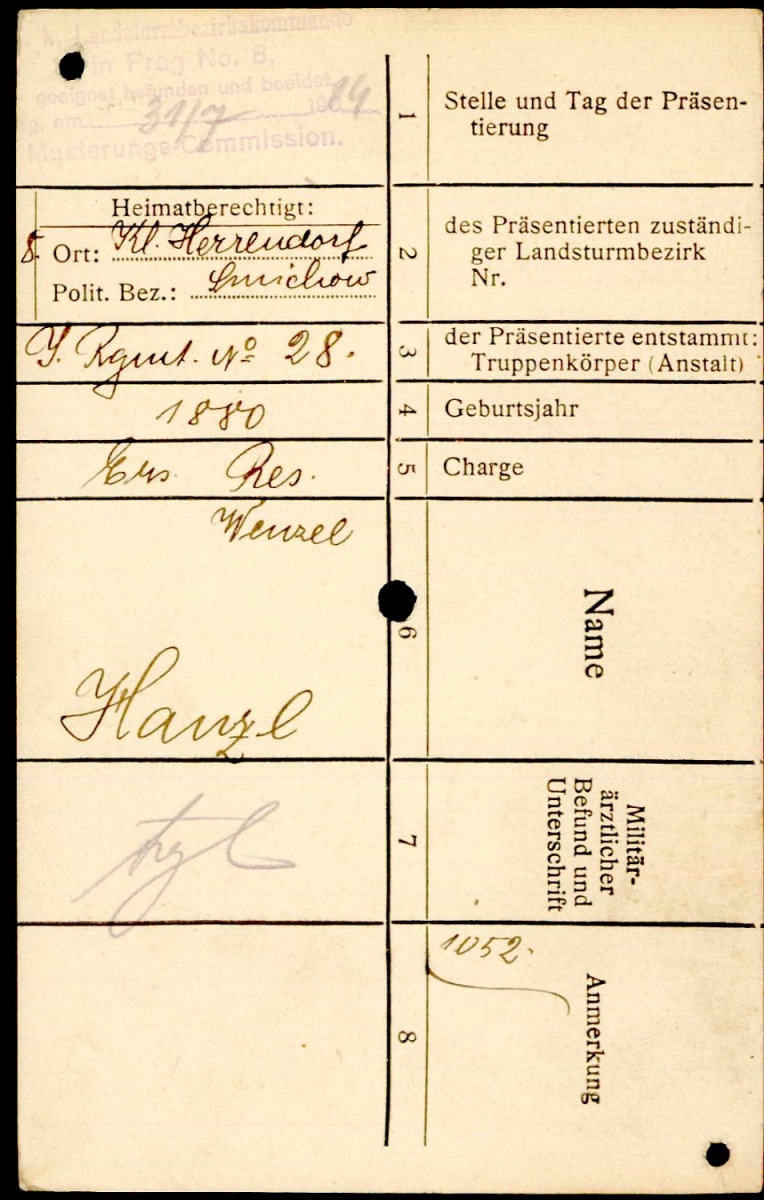 k. k. Landsturmbezirkskommando
in Prag No. 8,
geeignet befunden und beeidet
am 31/7 1914
Musterungs-Commission.
1
Stelle und Tag der Präsen-
tierung
Heimatberechtigt:
8. Ort: Kl. Herrendorf
Polit. Bez.: Smichow
2
des Präsentierten zuständi-
ger Landsturmbezirk
Nr.
I. Rgmt. No 28.
3
der Präsentierte entstammt:
Truppenkörper (Anstalt)
1880
4
Geburtsjahr
Ers. Res.
5
Charge
Wenzel
Hanzl
6
Name
7
Militär-
ärztlicher
Befund und
Unterschrift
1052.
8
Anmerkung